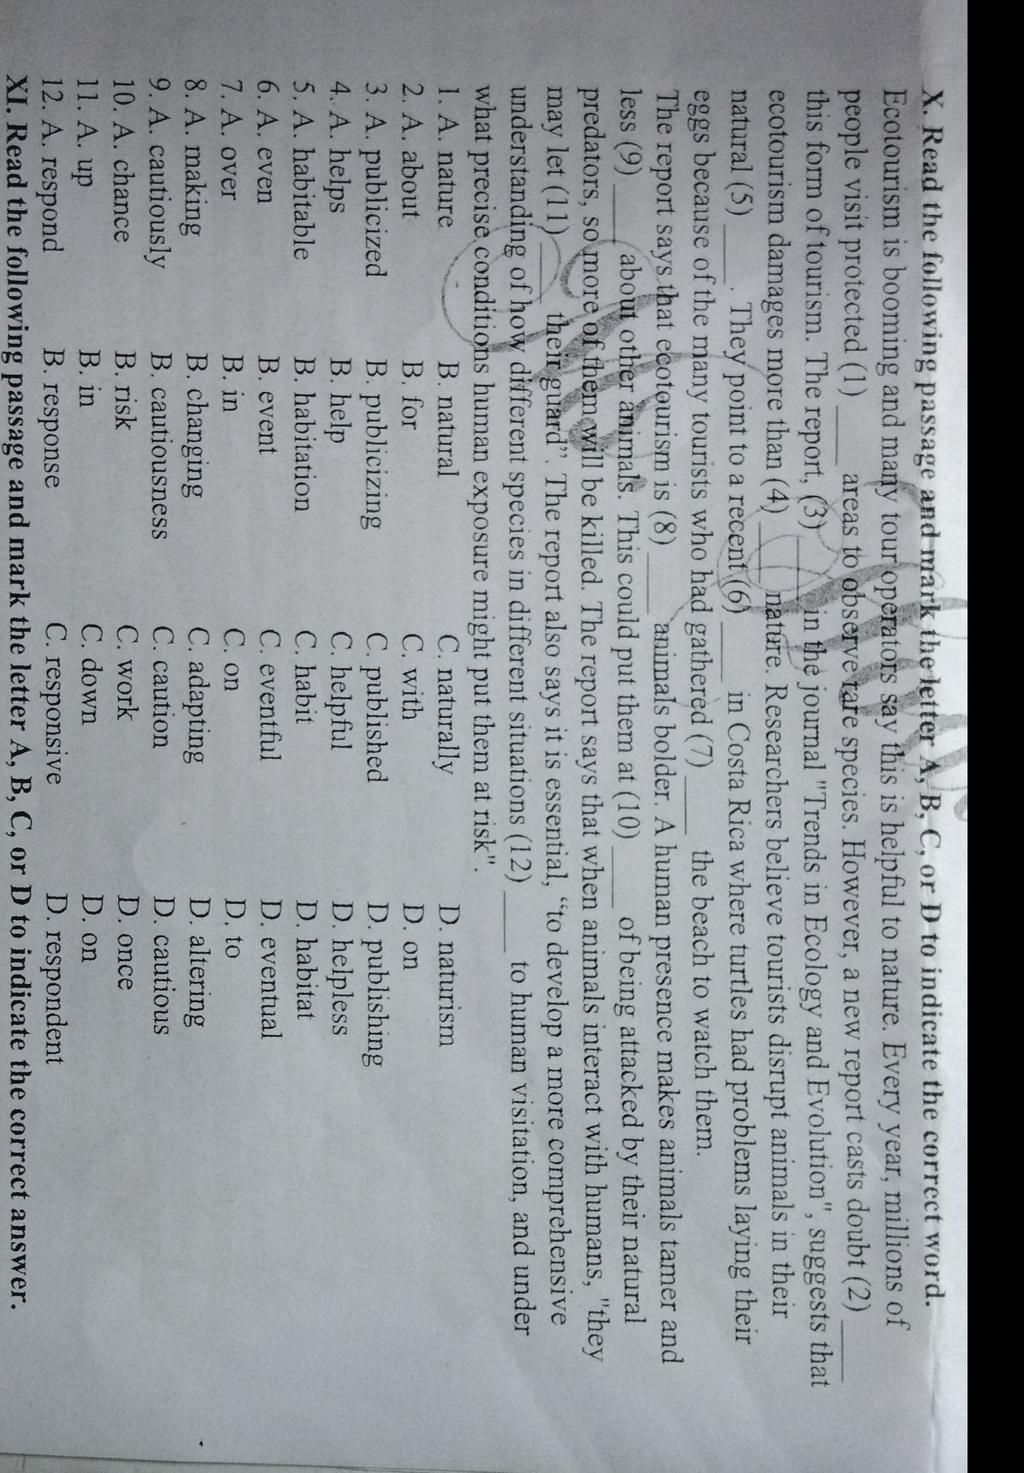 X. Read the following passage and mark the letter A, B, C, or D to indicate the correct word.
Ecotourism is booming and many tour operators say this is helpful to nature. Every year, millions of
people visit protected (1) ____ areas to observe rare species. However, a new report casts doubt (2) ____
this form of tourism. The report, (3) ____ in the journal "Trends in Ecology and Evolution", suggests that
ecotourism damages more than (4) ____ nature. Researchers believe tourists disrupt animals in their
natural (5) ____. They point to a recent (6) ____ in Costa Rica where turtles had problems laying their
eggs because of the many tourists who had gathered (7) ____ the beach to watch them.
The report says that ecotourism is (8) ____ animals bolder. A human presence makes animals tamer and
less (9) ____ about other animals. This could put them at (10) ____ of being attacked by their natural
predators, so more of them will be killed. The report says that when animals interact with humans, "they
may let (11) ____ their guard". The report also says it is essential, "to develop a more comprehensive
understanding of how different species in different situations (12) ____ to human visitation, and under
what precise conditions human exposure might put them at risk".
1. A. nature B. natural C. naturally D. naturism
2. A. about B. for C. with D. on
3. A. publicized B. publicizing C. published D. publishing
4. A. helps B. help C. helpful D. helpless
5. A. habitable B. habitation C. habit D. habitat
6. A. even B. event C. eventful D. eventual
7. A. over B. in C. on D. to
8. A. making B. changing C. adapting D. altering
9. A. cautiously B. cautiousness C. caution D. cautious
10. A. chance B. risk C. work D. once
11. A. up B. in C. down D. on
12. A. respond B. response C. responsive D. respondent
XI. Read the following passage and mark the letter A, B, C, or D to indicate the correct answer.